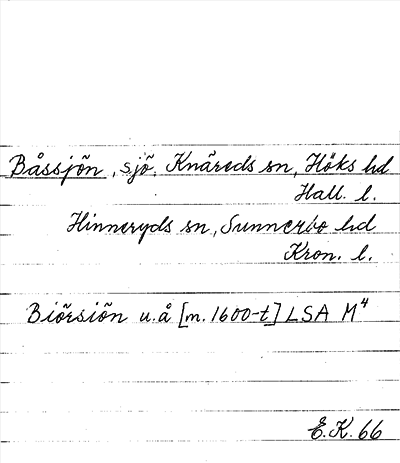 Båssjön, sjö, Knäreds sn, Höks hd
Hall. l.
Hinneryds sn, Sunnerbo hd
Kron. l.
Biörsiön u.å [m. 1600-t] LSA M⁴
E.K. 66